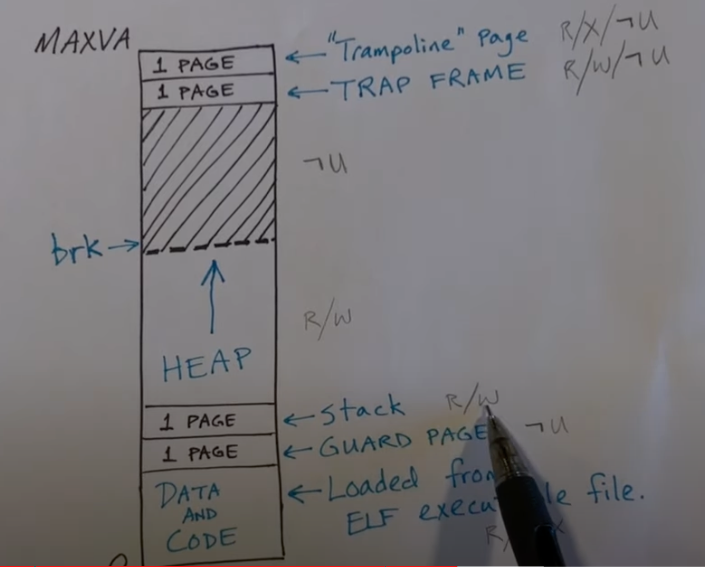 MAXVA
1 PAGE ← "Trampoline" Page R/X/¬U
1 PAGE ← TRAP FRAME R/W/¬U
¬U
brk →
R/W
HEAP
1 PAGE ← Stack R/W
1 PAGE ← GUARD PAGE ¬U
DATA AND CODE ← Loaded from
ELF file.